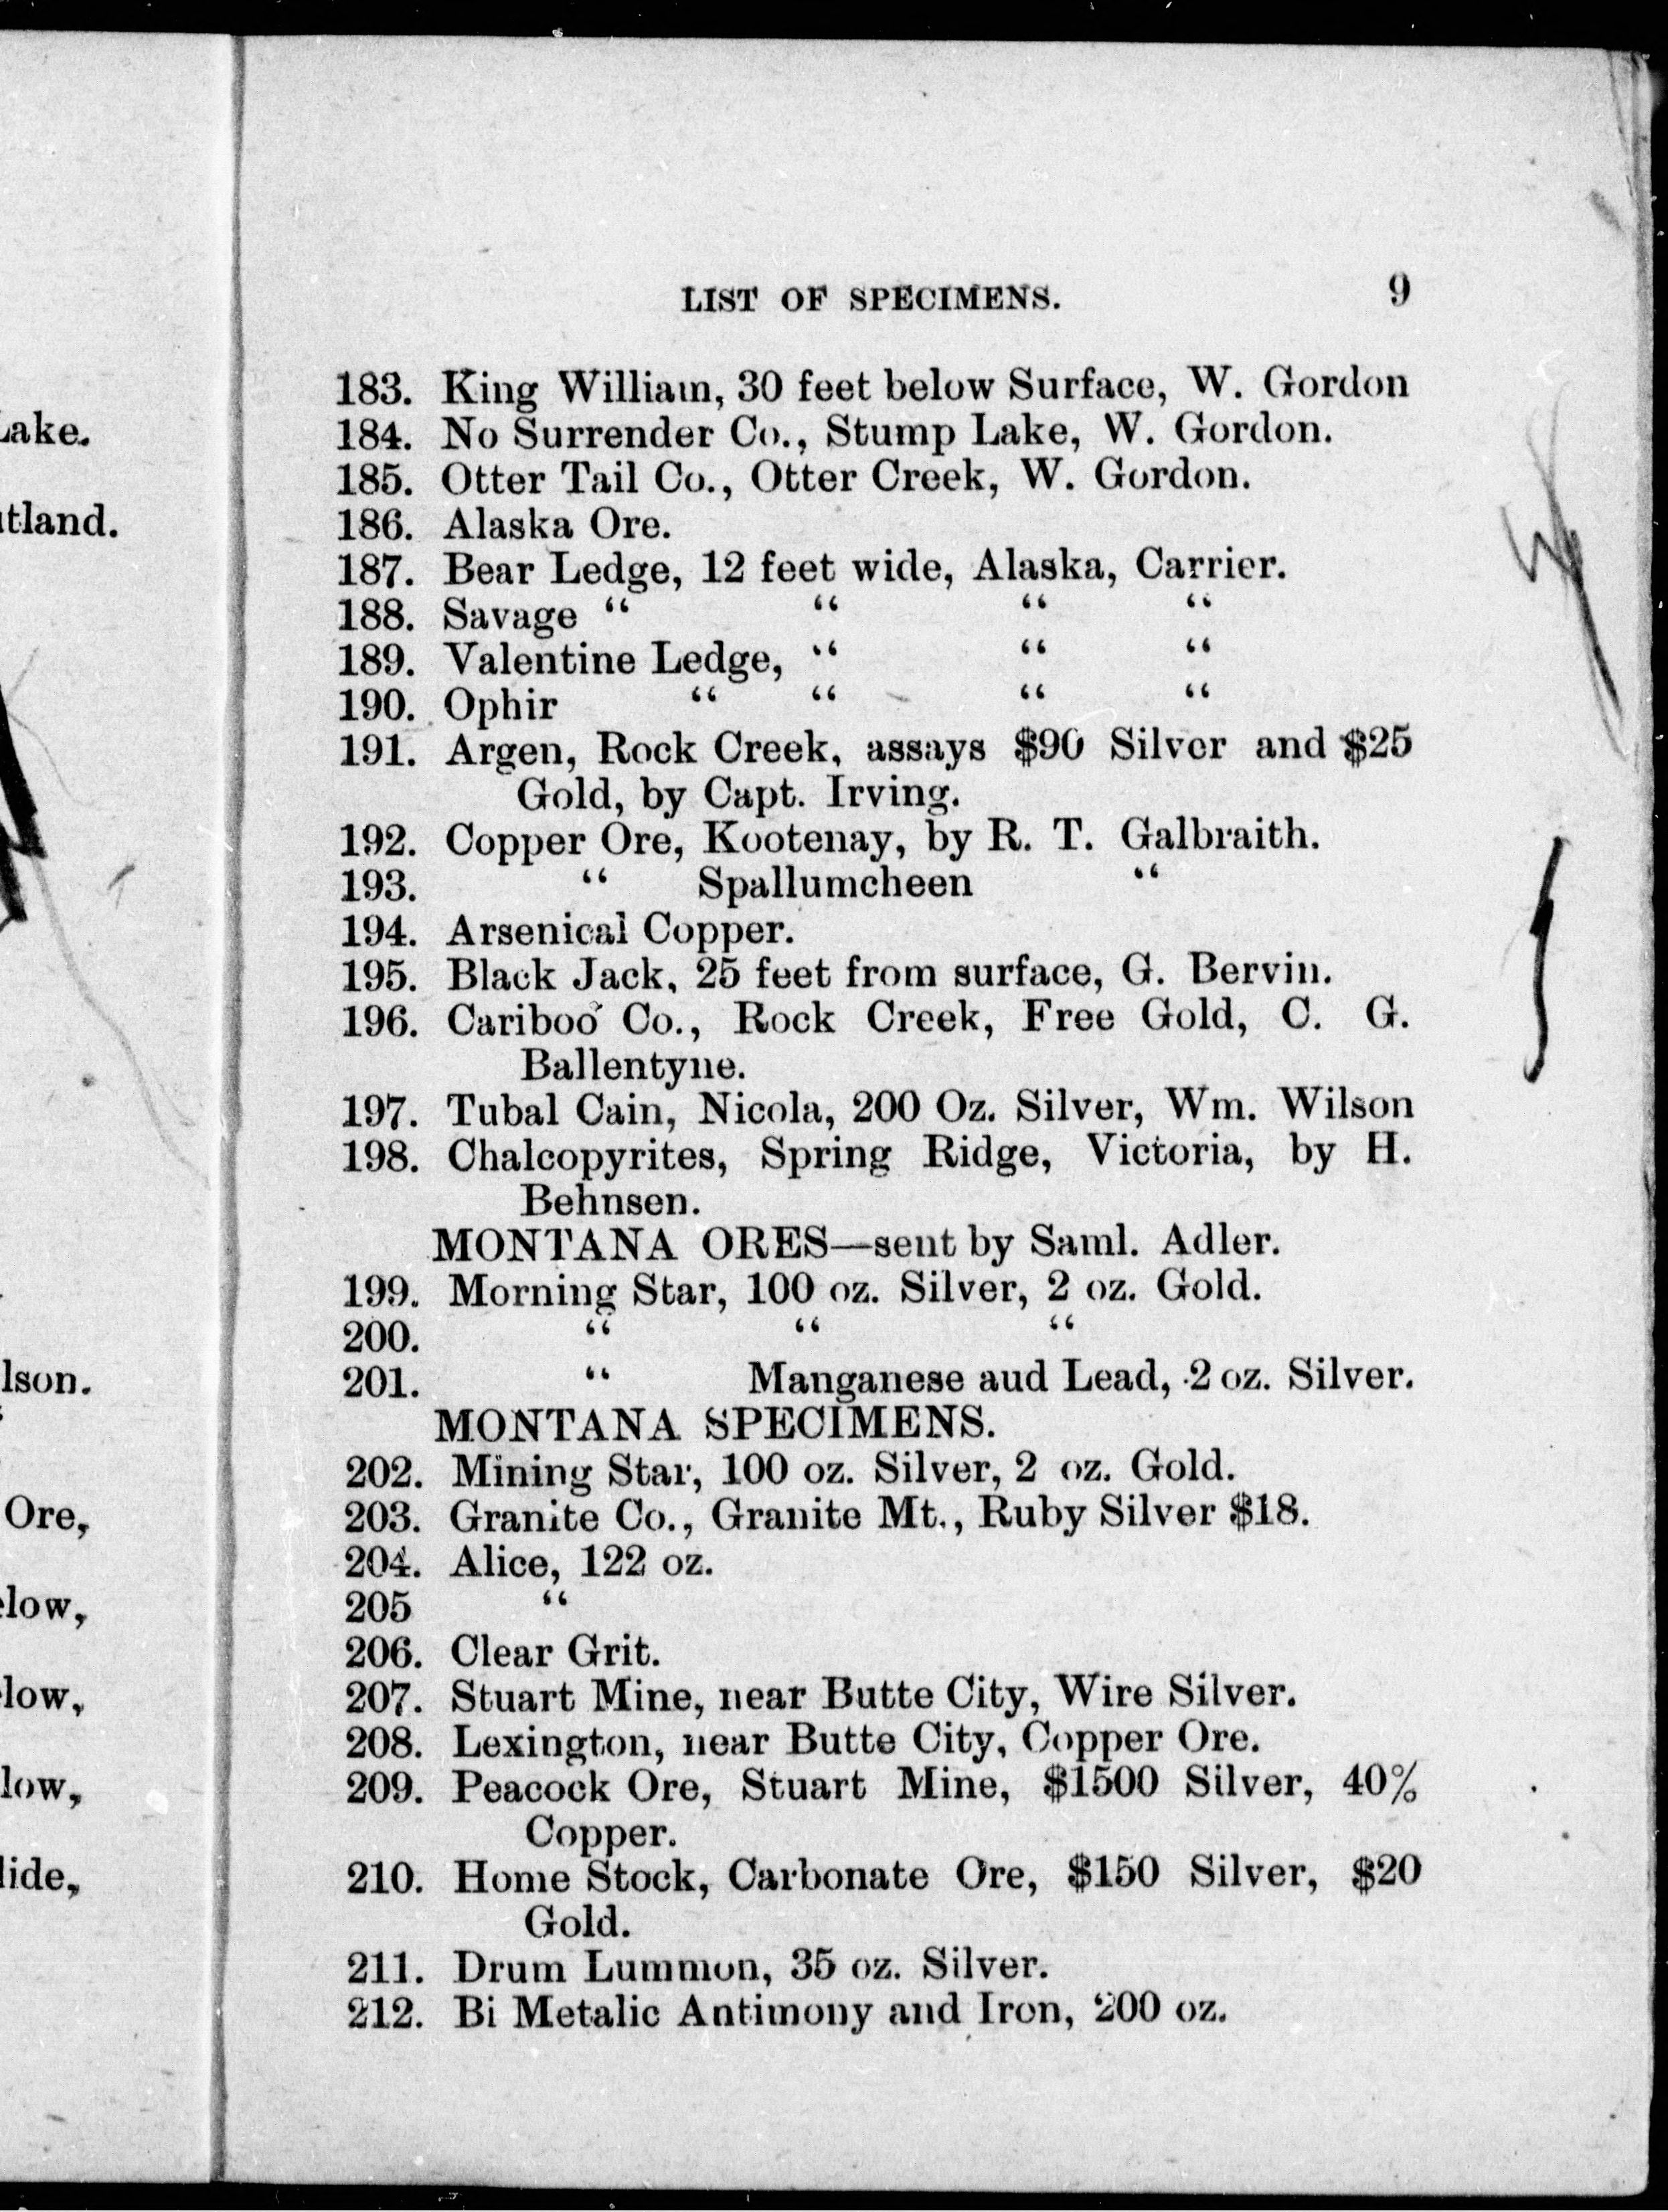 Lake.
tland.
lson.
Ore,
elow,
low,
low,
lide,
LIST OF SPECIMENS. 9
183. King William, 30 feet below Surface, W. Gordon
184. No Surrender Co., Stump Lake, W. Gordon.
185. Otter Tail Co., Otter Creek, W. Gordon.
186. Alaska Ore.
187. Bear Ledge, 12 feet wide, Alaska, Carrier.
188. Savage “ “ “ “
189. Valentine Ledge, “ “ “
190. Ophir “ “ “ “
191. Argen, Rock Creek, assays $90 Silver and $25
Gold, by Capt. Irving.
192. Copper Ore, Kootenay, by R. T. Galbraith.
193. “ Spallumcheen “
194. Arsenical Copper.
195. Black Jack, 25 feet from surface, G. Bervin.
196. Cariboo Co., Rock Creek, Free Gold, C. G.
Ballentyne.
197. Tubal Cain, Nicola, 200 Oz. Silver, Wm. Wilson
198. Chalcopyrites, Spring Ridge, Victoria, by H.
Behnsen.
MONTANA ORES—sent by Saml. Adler.
199. Morning Star, 100 oz. Silver, 2 oz. Gold.
200. “ “ “
201. “ Manganese aud Lead, 2 oz. Silver.
MONTANA SPECIMENS.
202. Mining Star, 100 oz. Silver, 2 oz. Gold.
203. Granite Co., Granite Mt., Ruby Silver $18.
204. Alice, 122 oz.
205 “
206. Clear Grit.
207. Stuart Mine, near Butte City, Wire Silver.
208. Lexington, near Butte City, Copper Ore.
209. Peacock Ore, Stuart Mine, $1500 Silver, 40%
Copper.
210. Home Stock, Carbonate Ore, $150 Silver, $20
Gold.
211. Drum Lummon, 35 oz. Silver.
212. Bi Metalic Antimony and Iron, 200 oz.